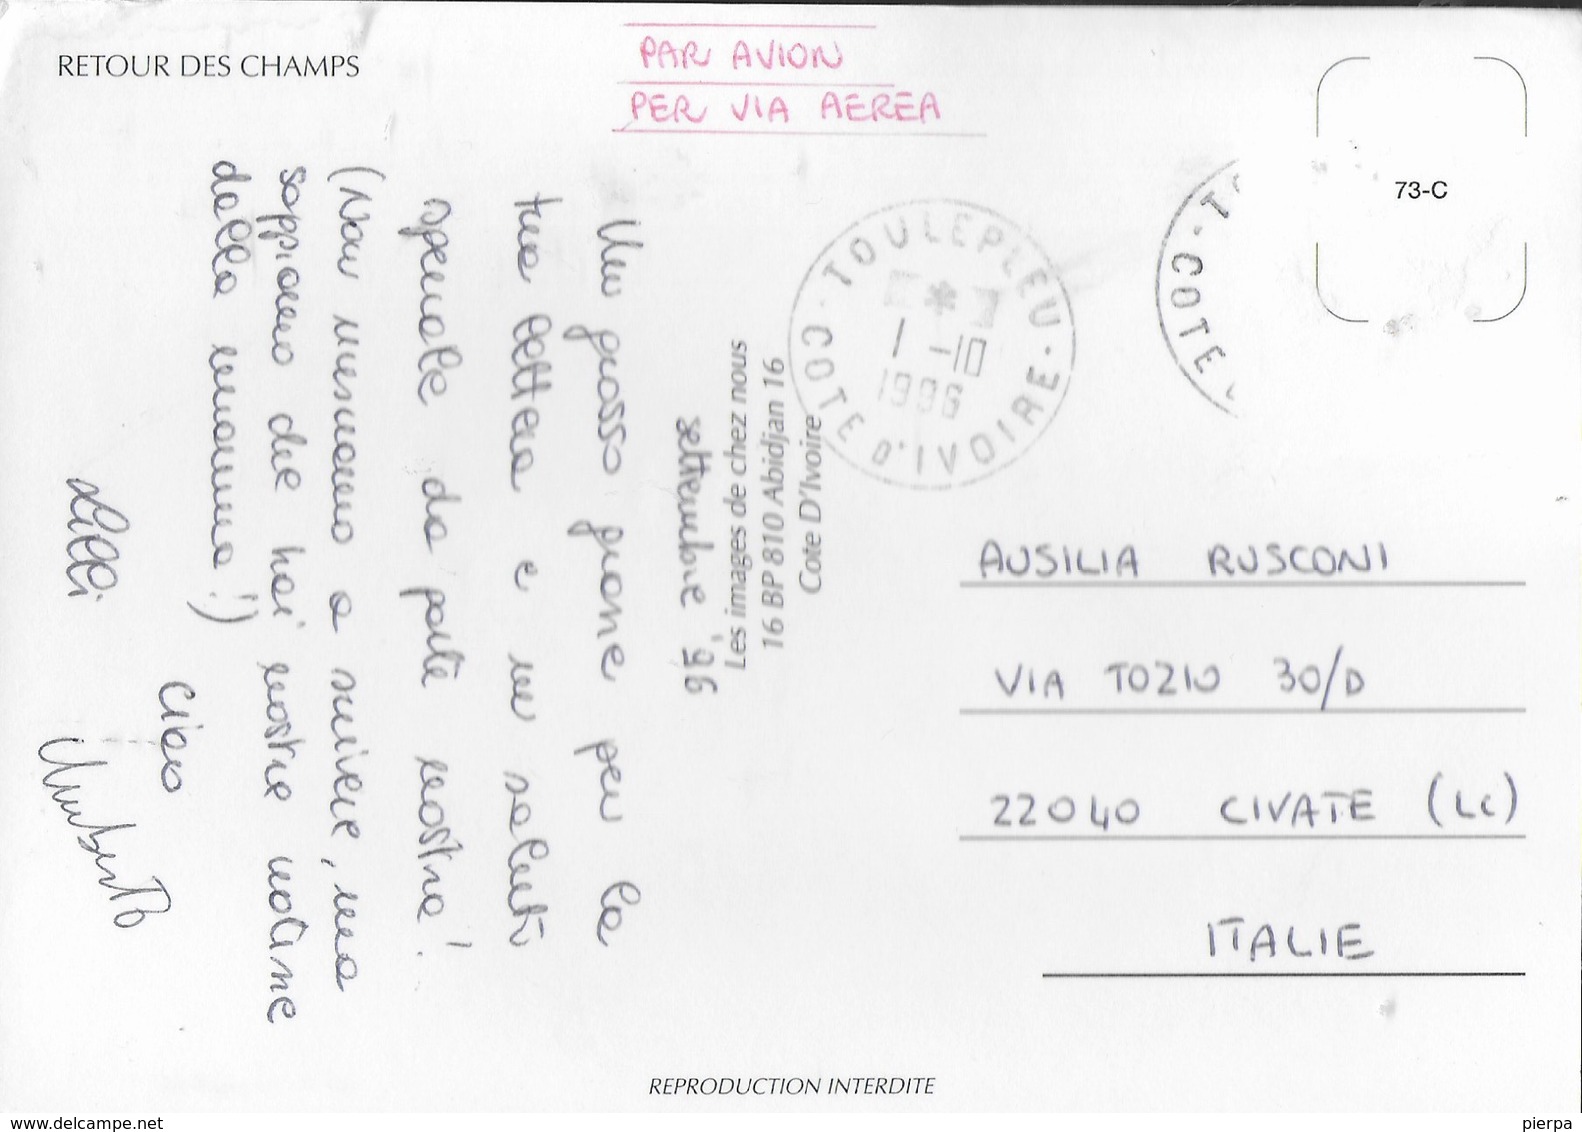 RETOUR DES CHAMPS
PAR AVION
PER VIA AEREA
73-C
TOULEPLEU
1-10
1996
COTE D'IVOIRE
COTE
Les images de chez nous
16 BP 810 Abidjan 16
Cote D'Ivoire
settembre '96
Un grosso grazie per la
tua lettera e un saluto
speciale da parte nostra!
(Non riusciamo a scrivere, ma
sappiamo che hai nostre notizie
dalla mamma!)
Ciao
Lilli
Umberto
AUSILIA RUSCONI
VIA TOZIO 30/D
22040 CIVATE (LC)
ITALIE
REPRODUCTION INTERDITE
www.delcampe.net
pierpa